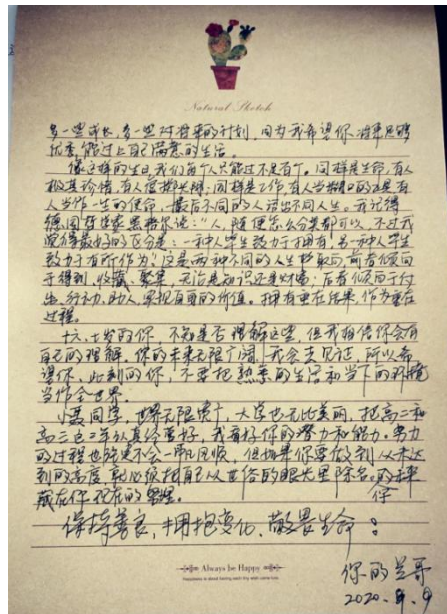 Natural Sketch
多一些成长，多一些对将来的计划，因为我希望你将来足够
优秀，能过上自己满意的生活。
像这样的生日，我们每个人只能过不足百个。同样是生命，有人
极其珍惜，有人僅掷失障；同样是工作，有人当糊口的工具，有
人当作一生的使命，最后不同的人活出不同人生。我记得
德国哲学家黑格尔说：“人，随便怎么分类都可以，不过我
觉得最好的区分是：一种人毕生致力于拥有，另一种人毕生
致力于有所作为。”这是两种不同的人生价取向，前者倾向
于得到、收藏、聚集，无论是知识还是财富；后者倾向于付
出、行动、助人，实现自身的价值。拥有重在结果，作为重在
过程。
十六、七岁的你，不知是否理解这些，但我相信你会有
自己的理解。你的未来无限广阔，我会去见证，所以希
望你，此刻的你，不要把熟悉的生活和当下的环境
当作全世界。
同学，世界无限宽广，大学也无比美丽，把高二和
高三这2年认真经营好，我看好你的潜力和能力。努力
的过程也许是不会一帆风顺，但如果你要做到从未达
到的高度，就必须把自己从世俗的眼光里除名。你的未来
藏在你现在的里。
保持善良，拥抱变化，敬畏生命！
Always be Happy
你的兰哥
2020.9.9